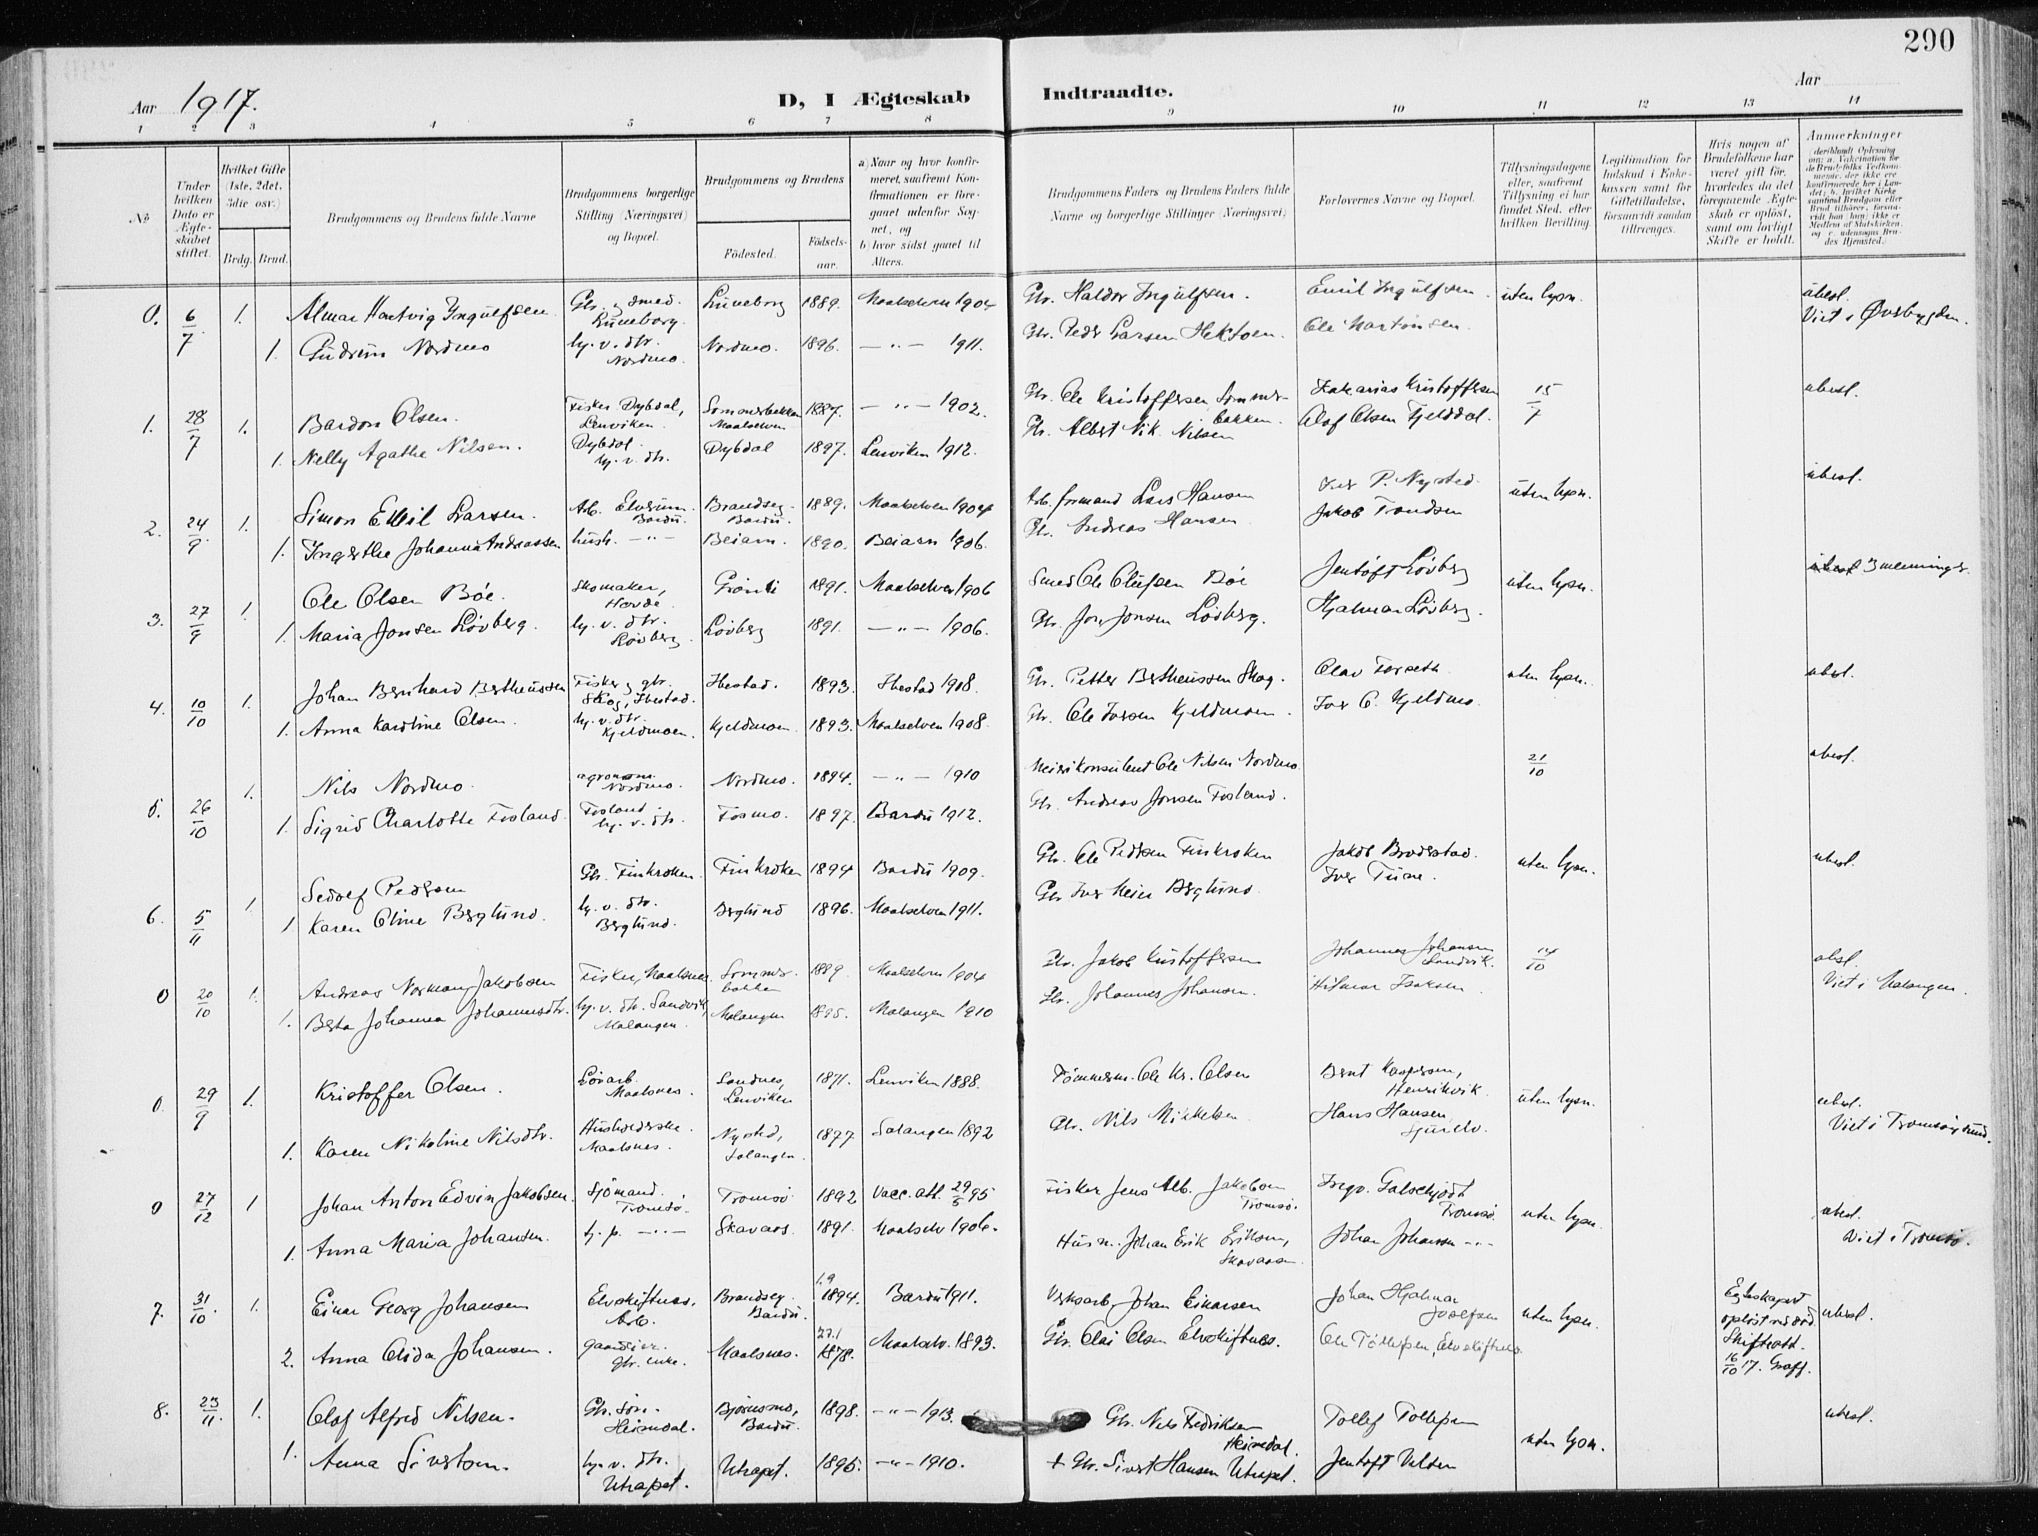 290
Aar 1917.
D, I Ægteskab Indtraadte.
Aar
1 2 3 4 5 6 7 8 9 10 11 12 13 14
No
Under hvilken Dato er Ægteskabet stiftet.
Hvilket Gifte (1ste, 2det, 3die osv.)
Brdg. Brud.
Brudgommens og Brudens fulde Navne
Brudgommens borgerlige Stilling (Næringsvei) og Bopæl.
Brudgommens og Brudens
Födested.
Födselsaar.
a) Naar og hvor konfirmeret, saafremt Konfirmationen er foregaaet udenfor Sognet, og
b) hvor sidst gaaet til Alters.
Brudgommens Faders og Brudens Faders fulde Navne og borgerlige Stillinger (Næringsvei)
Forlovernes Navne og Bopæl.
Tillysningsdagene eller, saafremt Tillysning ei har fundet Sted, efter hvilken Bevilling.
Legitimation for Indskud i Enkekassen samt for Giftetilladelse, forsaavidt saadan tiltrænges.
Hvis nogen af Brudefolkene har været gift för, hvorledes da det foregaaende Ægteskab er oplöst, samt om lovligt Skifte er holdt.
Anmerkninger
0. 6/7 1. Almar Hartvig Ingulfsen Gbr., smed. Luneborg Luneborg 1889. Maalselven 1904 Gbr. Haldor Ingulfsen. Emil Ingulfsen uten lysn. ubesl. Viet i Øverbygden.
1. Gudrun Nordmo hj. v. dtr. Nordmo. Nordmo. 1896. — " — 1911. Gbr. Peder Larsen Hektoen. Ole Martinsen.
1. 28/7 1. Bardon Olsen. Fisker Dybdal, Lenviken. Sommerbakken Maalselven 1887. — " — 1902. Gbr. Ole Kristoffersen Sommerbakken. Zakarias Kristoffersen 15/7 ubesl.
1. Nelly Agathe Nilsen. Dybdal. hj. v. dtr. Dybdal 1897. Lenviken 1912. Gbr. Albert Nik. Nilsen Olaf Olsen Fjelddal.
2. 24/9 1. Simon Emil Larsen. Arb. Elverum Bardu. Brandseg. Bardu. 1889. Maalselven 1904 Arb. formand Lars Hansen Iver P. Nysted. uten lysn. ubesl.
1. Ingerthe Johanna Andreassen hush. — " — Beiarn. 1890. Beiarn 1906. Gbr. Andreas Hansen Jakob Trondsen
3. 27/9 1. Ole Olsen Böe. Skomaker, Hovde. 1891. Maalselven 1906 Smed Ole Olufsen Böe Jentoft Lövberg uten lysn.
1. Maria Jonsen Lövberg. hj. v. dtr. Lövberg. Lövberg 1891. — " — 1906. Gbr. Jon Jonsen Lövberg. Hjalmar Lövberg.
4. 10/10 1. Johan Bernhard Bertheussen Fisker, gbr. Skog, Ibestad. Ibestad. 1893. Ibestad 1908. Gbr. Petter Bertheussen Skog. Olav Forseth uten lysn. ubesl.
1. Anna Karoline Olsen. hj. v. dtr. Kjeldmoen. Kjeldmoen 1893. Maalselven 1908. Gbr. Ole Iversen Kjeldmoen. Iver O. Kjeldmo.
5. 26/10 1. Nils Nordmo. agronom Nordmo. Nordmo. 1894. — " — 1910 Meierikonsulent Ole Nilsen Nordmo 21/10 ubesl.
1. Sigrid Charlotte Fosland. Fosland. hj. v. dtr. Fosmo. 1897. Bardu 1912. Gbr. Andreas Jonsen Fosland.
6. 5/11 1. Sedolf Pedersen Gbr. Finkroken. Finkroken 1894 Bardu 1909. Gbr. Ole Pedersen Finkroken Jakob Broderstad. uten lysn. ubesl.
1 Karen Oline Berglund. hj. v. dtr. Berglund. Berglund 1896. Maalselven 1911. Gbr. Iver Meier Berglund.
0 20/10 1. Andreas Norman Jakobsen Fisker, Maalsnes Sommerbakken 1889. Maalselven 1904 Gbr. Jakob Kristoffersen Johannes Johansen Sandvik. 14/10 ubesl. Viet i Malangen.
1. Berta Johanna Johannesdtr. hj. v. dtr. Sandvik, Malangen. Malangen 1895. Malangen 1910 Gbr. Johannes Johansen. Hilmar Isaksen
0. 29/9 1. Kristoffer Olsen. Maalsnes. Sandnes, Lenviken 1871. Lenviken 1888. Tömmerm. Ole Kr. Olsen Bernt Kaspersen, Henrikvik. uten lysn. ubesl. Viet i Tromsøysund.
1. Karen Nikoline Nilsdtr. Husholderske Maalsnes. Nysted, Salangen. 1877 Salangen 1892 Gbr. Nils Mikkelsen Hans Hansen
0 27/12 1 Johan Anton Edvin Jakobsen Sjömand. Tromsö. Tromsö. 1892 Vacc. att. 29/5 95 Fisker Jens Alb. Jakobsen Tromsö. Tromsö. uten lysn. ubesl. Viet i Tromsö.
1. Anna Maria Johansen. hj. p. — " — Skavaas. 1891. Maalselv 1906. Husm. Johan Erik Eriksen, Johan Johansen — " —
7. 31/10 1. Einar Georg Johansen Elvskiftnes, Arb. Brandseg. Bardu. 1.9 1894. Bardu 1911. Verksarb. Johan Einarsen Johan Hjalmar Josefsen uten lysn. Egteskapet oplöst ved död Skifteatt. 16/10 17. ubesl.
2. Anna Olida Johansen. gaardeier. Gbr. enke. Maalsnes. 1878. Maalselv. 1893. Gbr. Olai Olsen Elvskiftnes. Ole Tollefsen, Elvskiftnes
8. 23/11. 1. Olaf Alfred Nilsen. Gbr. sön. Heimdal. Björnsmo, Bardu. 1898. — " — 1913. Gbr. Nils Fredriksen Heimdal. Tollef Tollefsen uten lysn. ubesl.
1. Anna Sivertsen. hj. v. dtr. Utrapet. Utrapet. 1895. — " — 1910. + Gbr. Sivert Hansen Utrapet. Jentoft